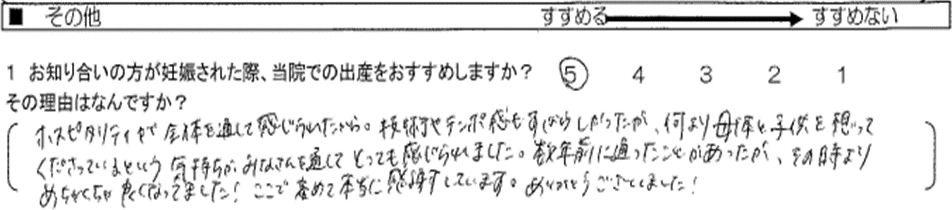 ■ その他 すすめる すすめない
1 お知り合いの方が妊娠された際、当院での出産をおすすめしますか? 5 4 3 2 1
その理由はなんですか?
ホスピタリティを全体を通して感じられたから。技術やテンポ感もすばらしかったが、何より母体と子供を想って
くださっているという気持ちが、みなさんを通してとっても感じられました。数年前に通ったことがあったが、その時より
めちゃくちゃ良くなってました!ここで産めて本当に感謝しています。ありがとうございました!